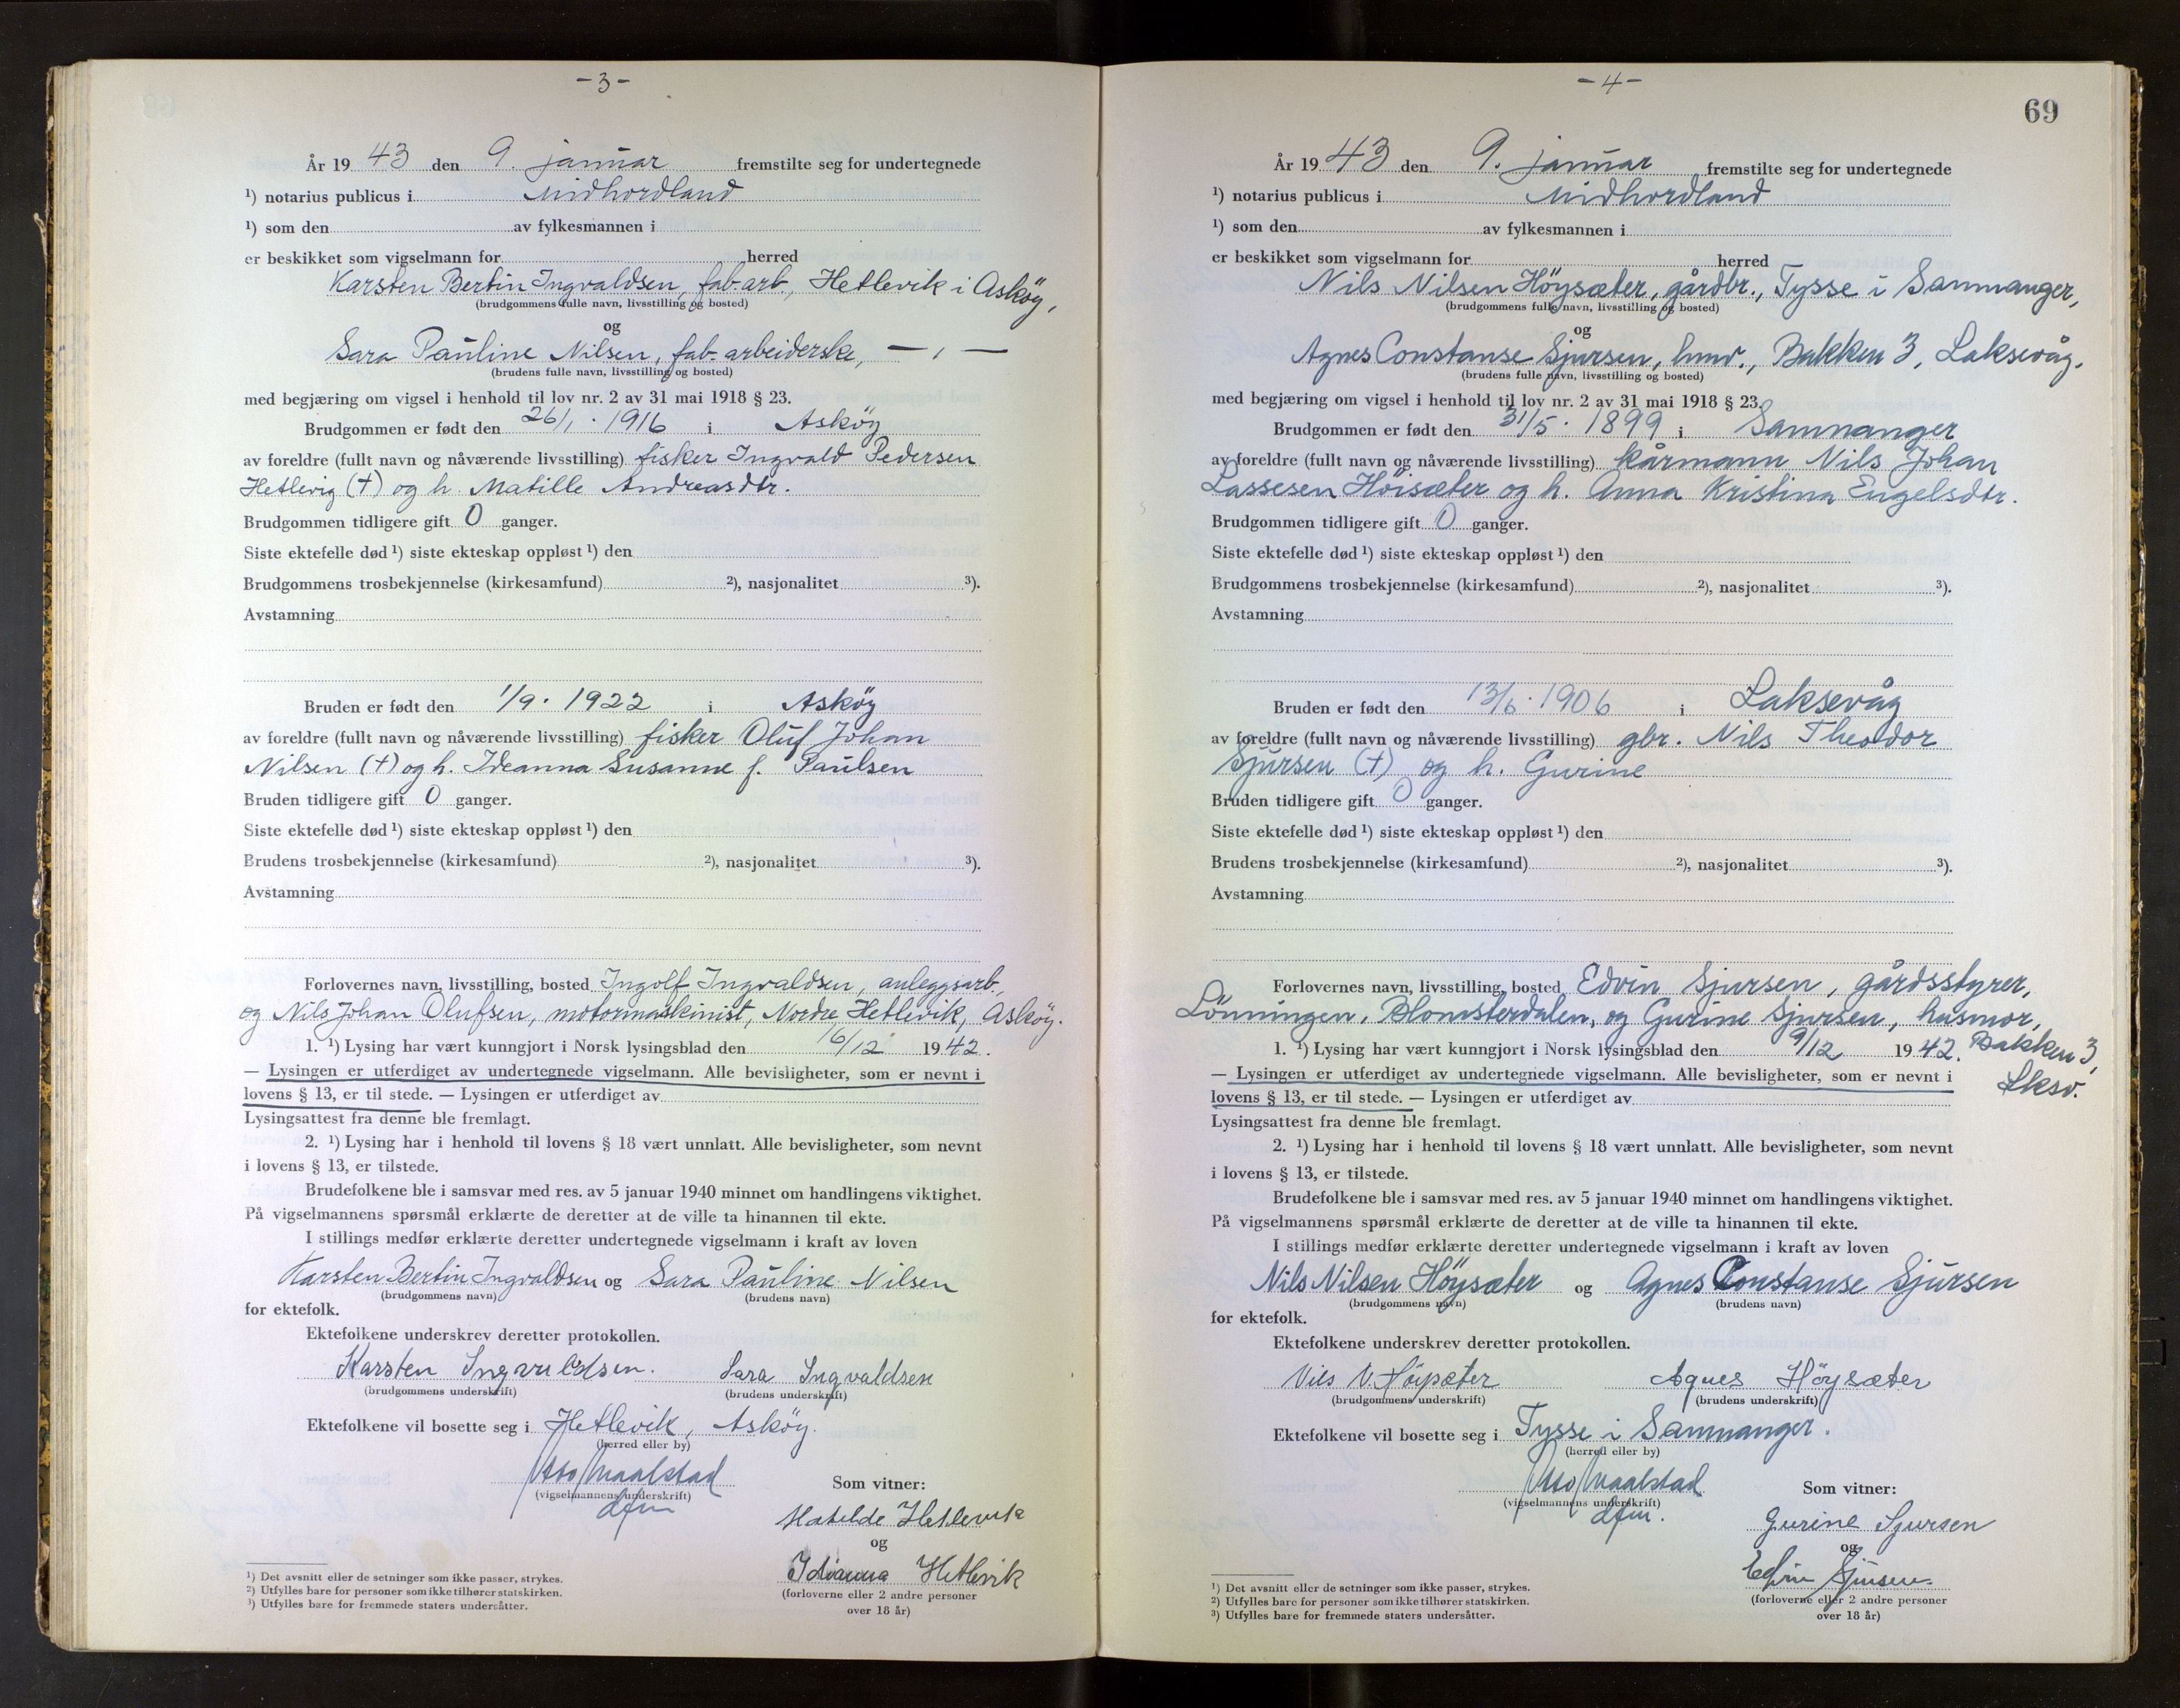 -3-
År 19 43 den 9. januar fremstilte seg for undertegnede
¹) notarius publicus i Midhordland
¹) som den av fylkesmannen i
er beskikket som vigselmann for herred
Karsten Bertin Ingvaldsen, fab-arb., Hetlevik i Asköy,
(brudgommens fulle navn, livsstilling og bosted)
og
Sara Pauline Nilsen, fab-arbeiderske, — , —
(brudens fulle navn, livsstilling og bosted)
med begjæring om vigsel i henhold til lov nr. 2 av 31 mai 1918 § 23.
Brudgommen er født den 26/1. 1916 i Asköy
av foreldre (fullt navn og nåværende livsstilling) fisker Ingvald Pedersen
Hetlevig (+) og h. Matille Andreasdtr.
Brudgommen tidligere gift 0 ganger.
Siste ektefelle død ¹) siste ekteskap oppløst ¹) den
Brudgommens trosbekjennelse (kirkesamfund) ²), nasjonalitet ³).
Avstamning
Bruden er født den 1/9. 1922 i Asköy
av foreldre (fullt navn og nåværende livsstilling) fisker Oluf Johan
Nilsen (+) og h. Ideanna Susanne f. Paulsen
Bruden tidligere gift 0 ganger.
Siste ektefelle død ¹) siste ekteskap oppløst ¹) den
Brudens trosbekjennelse (kirkesamfund) ²), nasjonalitet ³).
Avstamning
Forlovernes navn, livsstilling, bosted Ingolf Ingvaldsen, anleggsarb.,
og Nils Johan Olufsen, motormaskinist, Nordre Hetlevik, Asköy.
1. ¹) Lysing har vært kunngjort i Norsk lysingsblad den 16/12 1942.
— Lysingen er utferdiget av undertegnede vigselmann. Alle bevisligheter, som er nevnt i
lovens § 13, er til stede. — Lysingen er utferdiget av
Lysingsattest fra denne ble fremlagt.
2. ¹) Lysing har i henhold til lovens § 18 vært unnlatt. Alle bevisligheter, som nevnt
i lovens § 13, er tilstede.
Brudefolkene ble i samsvar med res. av 5 januar 1940 minnet om handlingens viktighet.
På vigselmannens spørsmål erklærte de deretter at de ville ta hinannen til ekte.
I stillings medfør erklærte deretter undertegnede vigselmann i kraft av loven
Karsten Bertin Ingvaldsen og Sara Pauline Nilsen
(brudgommens navn) (brudens navn)
for ektefolk.
Ektefolkene underskrev deretter protokollen.
Karsten Ingvaldsen. Sara Ingvaldsen
(brudgommens underskrift) (brudens underskrift)
Ektefolkene vil bosette seg i Hetlevik, Asköy.
(herred eller by)
Otto Maalstad
(vigselmannens underskrift)
dfm
Som vitner:
Matilde Hetlevik
og
Idianna Hetlevik
(forloverne eller 2 andre personer
over 18 år)
¹) Det avsnitt eller de setninger som ikke passer, strykes.
²) Utfylles bare for personer som ikke tilhører statskirken.
³) Utfylles bare for fremmede staters undersåtter.
-4-
69
År 19 43 den 9. januar fremstilte seg for undertegnede
¹) notarius publicus i Midhordland
¹) som den av fylkesmannen i
er beskikket som vigselmann for herred
Nils Nilsen Höysæter, gårdbr., Tysse i Samnanger,
(brudgommens fulle navn, livsstilling og bosted)
og
Agnes Constanse Sjursen, husm., Bakken 3, Laksevåg.
(brudens fulle navn, livsstilling og bosted)
med begjæring om vigsel i henhold til lov nr. 2 av 31 mai 1918 § 23.
Brudgommen er født den 31/5. 1899 i Samnanger
av foreldre (fullt navn og nåværende livsstilling) kårmann Nils Johan
Lassesen Höisæter og h. Anna Kristina Engelsdtr.
Brudgommen tidligere gift 0 ganger.
Siste ektefelle død ¹) siste ekteskap oppløst ¹) den
Brudgommens trosbekjennelse (kirkesamfund) ²), nasjonalitet ³).
Avstamning
Bruden er født den 13/6. 1906 i Laksevåg
av foreldre (fullt navn og nåværende livsstilling) gbr. Nils Theodor
Sjursen (+) og h. Gurine
Bruden tidligere gift 0 ganger.
Siste ektefelle død ¹) siste ekteskap oppløst ¹) den
Brudens trosbekjennelse (kirkesamfund) ²), nasjonalitet ³).
Avstamning
Forlovernes navn, livsstilling, bosted Edvin Sjursen, gårdsstyrer,
Lönningen, Blomsterdalen, og Gurine Sjursen, husmor,
1. ¹) Lysing har vært kunngjort i Norsk lysingsblad den 9/12 1942. Bakken 3,
— Lysingen er utferdiget av undertegnede vigselmann. Alle bevisligheter, som er nevnt i Lksv.
lovens § 13, er til stede. — Lysingen er utferdiget av
Lysingsattest fra denne ble fremlagt.
2. ¹) Lysing har i henhold til lovens § 18 vært unnlatt. Alle bevisligheter, som nevnt
i lovens § 13, er tilstede.
Brudefolkene ble i samsvar med res. av 5 januar 1940 minnet om handlingens viktighet.
På vigselmannens spørsmål erklærte de deretter at de ville ta hinannen til ekte.
I stillings medfør erklærte deretter undertegnede vigselmann i kraft av loven
Nils Nilsen Höysæter og Agnes Constanse Sjursen
(brudgommens navn) (brudens navn)
for ektefolk.
Ektefolkene underskrev deretter protokollen.
Nils N. Höysæter Agnes Höysæter
(brudgommens underskrift) (brudens underskrift)
Ektefolkene vil bosette seg i Tysse i Samnanger.
(herred eller by)
Otto Maalstad
(vigselmannens underskrift)
dfm.
Som vitner:
Gurine Sjursen
og
Edvin Sjursen.
(forloverne eller 2 andre personer
over 18 år)
¹) Det avsnitt eller de setninger som ikke passer, strykes.
²) Utfylles bare for personer som ikke tilhører statskirken.
³) Utfylles bare for fremmede staters undersåtter.